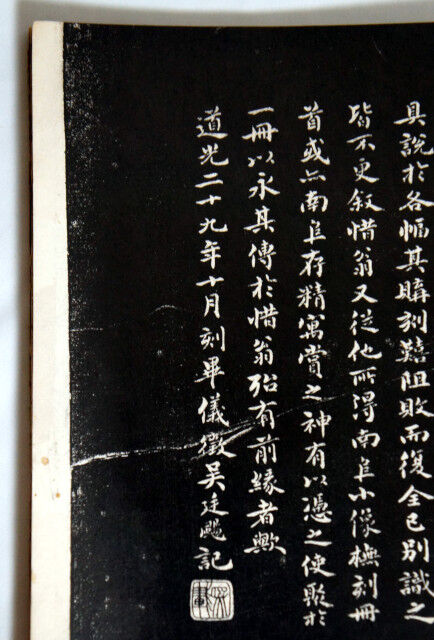 具說於各幅其購刻囏阻敗而復全已別識之
皆不更叙惜翁又從他所得南阜小像橅刻冊
首或亦南阜存精寓賞之神有以憑之使聚於
一冊以永其傳於惜翁殆有前緣者歟
道光二十九年十月刻畢儀徵吴廷颺記